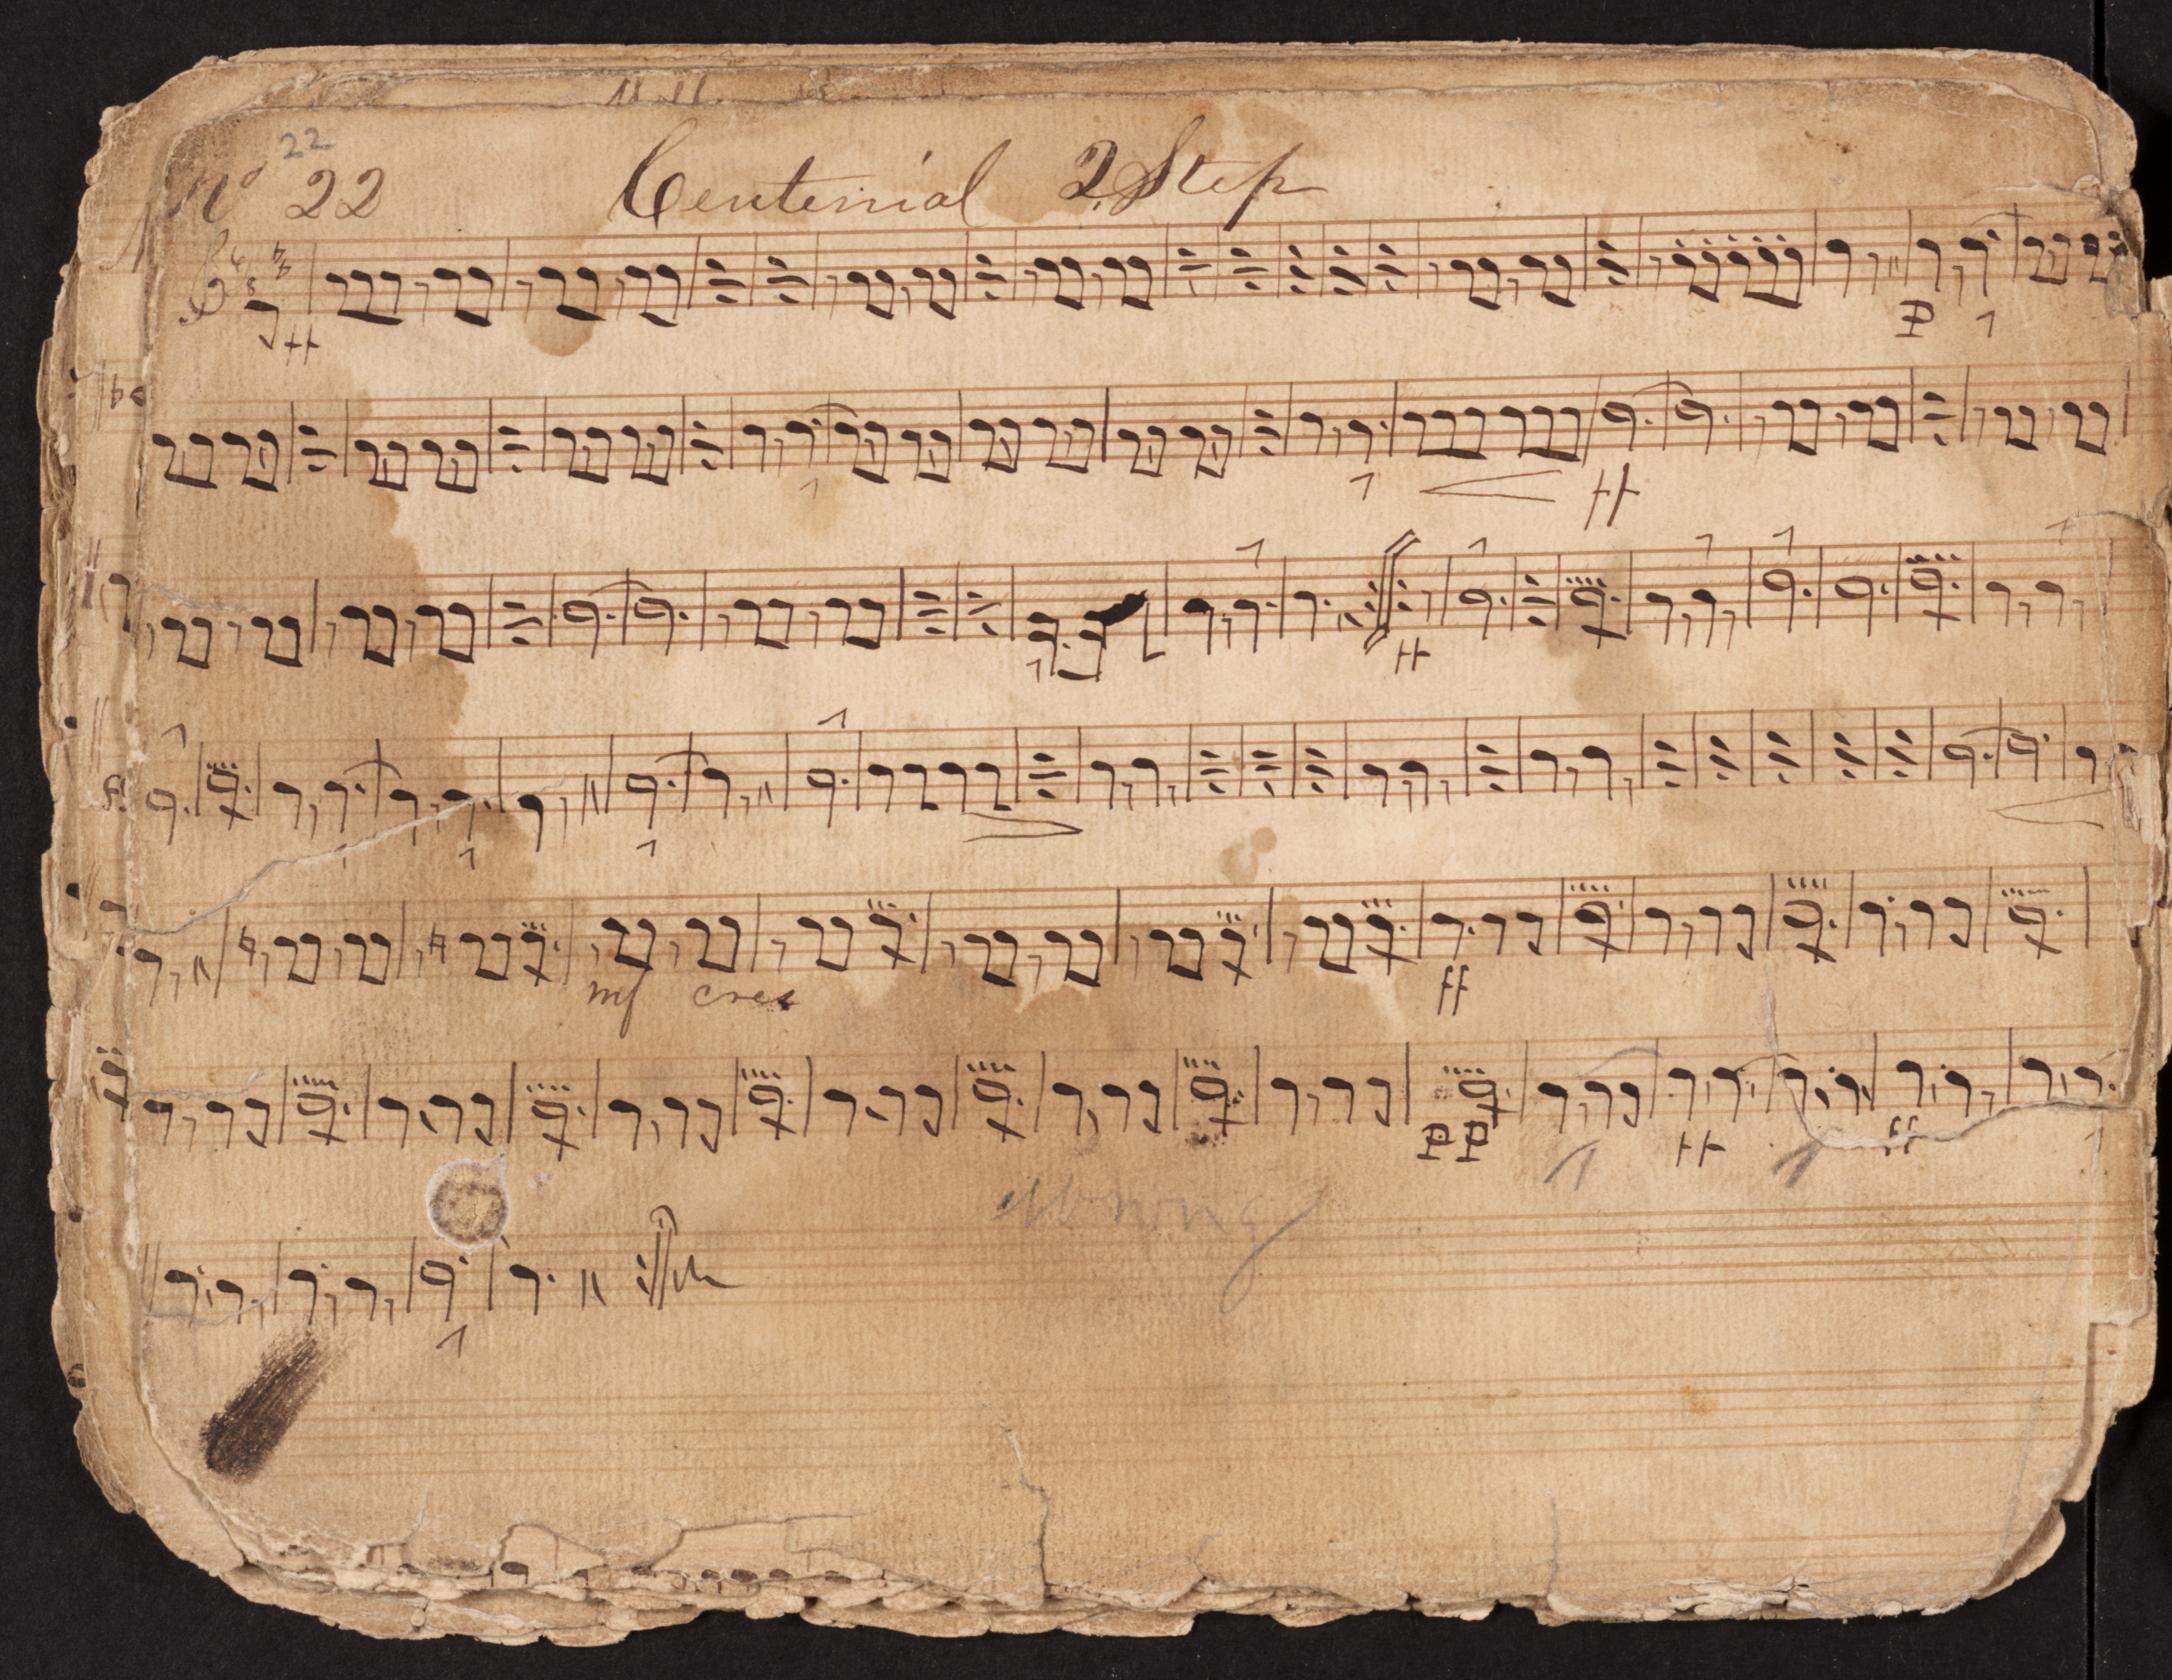 22
No 22 Centenial 2 Step
6 8
ff
P
ff
ff
mf cres
ff
PP ff ff